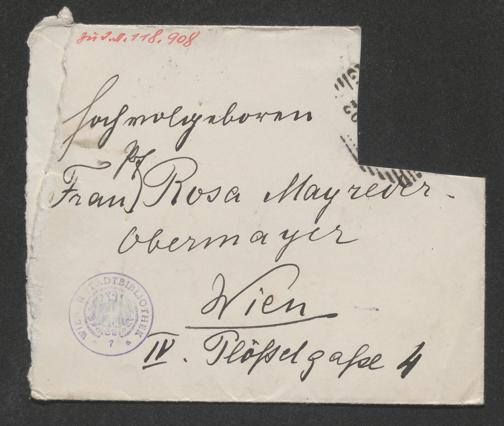 zu J.N. 118.908
Hochwolgeboren
Frau Rosa Mayreder-
Obermayer
Wien
IV. Plößlgaße 4
WIENER STADTBIBLIOTHEK